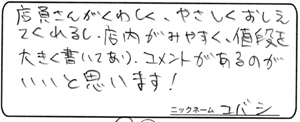 店員さんがくわしく、やさしくおしえ
てくれるし、店内がみやすく、値段を
大きく書いてあり、コメントがあるのが
いいと思います!
ニックネーム コバシ